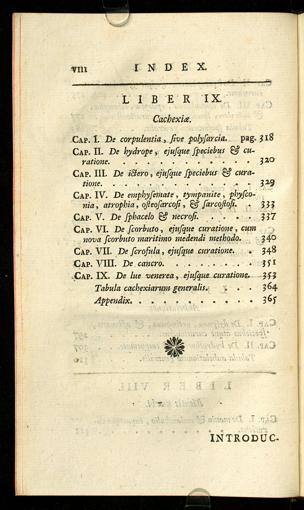 VIII INDEX.
LIBER IX.
Cachexiæ.
CAP. I. De corpulentia, sive polysarcia. pag. 318
CAP. II. De hydrope, ejusque speciebus & cu-
ratione. . . . . . . . . . . . 320
CAP. III. De ictero, ejusque speciebus & cura-
tione. . . . . . . . . . . . . 329
CAP. IV. De emphysemate, tympanite, physco-
nia, atrophia, osteosarcosi, & sarcostosi. . 333
CAP. V. De sphacelo & necrosi. . . . 337
CAP. VI. De scorbuto, ejusque curatione, cum
nova scorbuto maritimo medendi methodo. . 340
CAP. VII. De scrofula, ejusque curatione. . 348
CAP. VIII. De cancro. . . . . . . 351
CAP. IX. De lue venerea, ejusque curatione. 353
Tabula cachexiarum generalis. . . . 364
Appendix. . . . . . . . . . 365
INTRODUC-